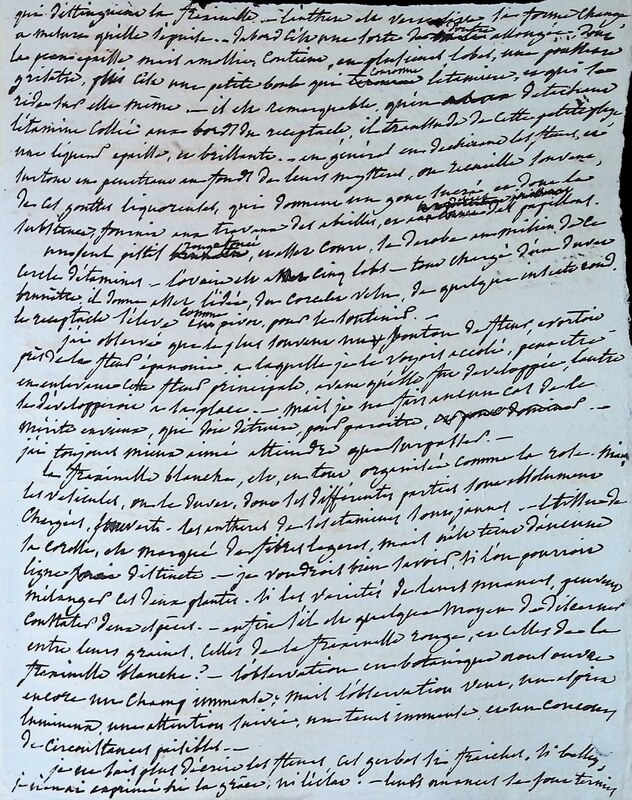 qui distinguera la fraxinelle – l'anthere est versatile sa forme change
a mesure qu'elle s'epuise – dabord c'est une sorte de allongée dont
la peau epaisse mais amollie, contient, en plusieurs lobes, une poussiere
grisatre, puis c'est une petite boule qui couronne letamine, et qui se
ride sur elle même – il est remarquable, qu'en detachant
l'etamine collée aux bords du receptacle, il transsude de cette petite playe
une liqueur epaisse, et brillante – en général en dechirant les fleurs, et
surtout en penetrant au fond de leurs mysteres, on recueille souvent,
de ces gouttes liquoreuses, qui donnent un gout sucré, et dont la
substance, fournit aux travaux des abeilles, et des papillons.
un seul pistil rougeatre, et assez court, se derobe au milieu de ce
cercle d'etamines – l'ovaire est a cinq lobes – tout chargé d'un duvet
brunâtre, il donne assez l'idée, du corcelet velu, de quelque insecte rond.
le receptacle s'eleve comme pivot, pour le soutenir –
j'ai observé que le plus souvent un bouton de fleur, avorte
près de la fleur épanouie, a laquelle je le voyois accolé, peut etre
en enlevant cette fleur principale, avant qu'elle fut developpée, l'autre
se développeroit a sa place. – mais je ne fais aucun cas de le
merite envieux, que doit detruire pour paroitre, –
j'ai toujours mieux aimé atteindre que surpasser –
la fraxinelle blanche, est en tout organisée comme la rose. mais
les vesicules, ou le duvet, dont ses différentes parties sont absolument
chargées, sont verts. les antheres de ses etamines sont jaunes – le tissu de
sa corolle, est marqué de fibres legeres, mais nulle teinte d'aucune
ligne distincte – je voudrois bien savoir, si l'on pourroit
mélanger ces deux plantes. si les varietés de leurs nuances, peuvent
constater deux especes. – enfin s'il est quelque moyen de discerner
entre leurs graines, celles de la fraxinelle rouge, et celles de la
fraxinelle blanche? – l'observation en botanique nous ouvre
encore un champ immense; mais l'observation veut, un esprit
lumineux, une attention suivie, un tems immense, et un concours
de circonstances paisibles –
je ne sais plus décrire les fleurs, ces gerbes si fraiches, si belles,
je n'en ai exprimé ni la grâce, ni l'eclat – leurs nuances se sont ternies